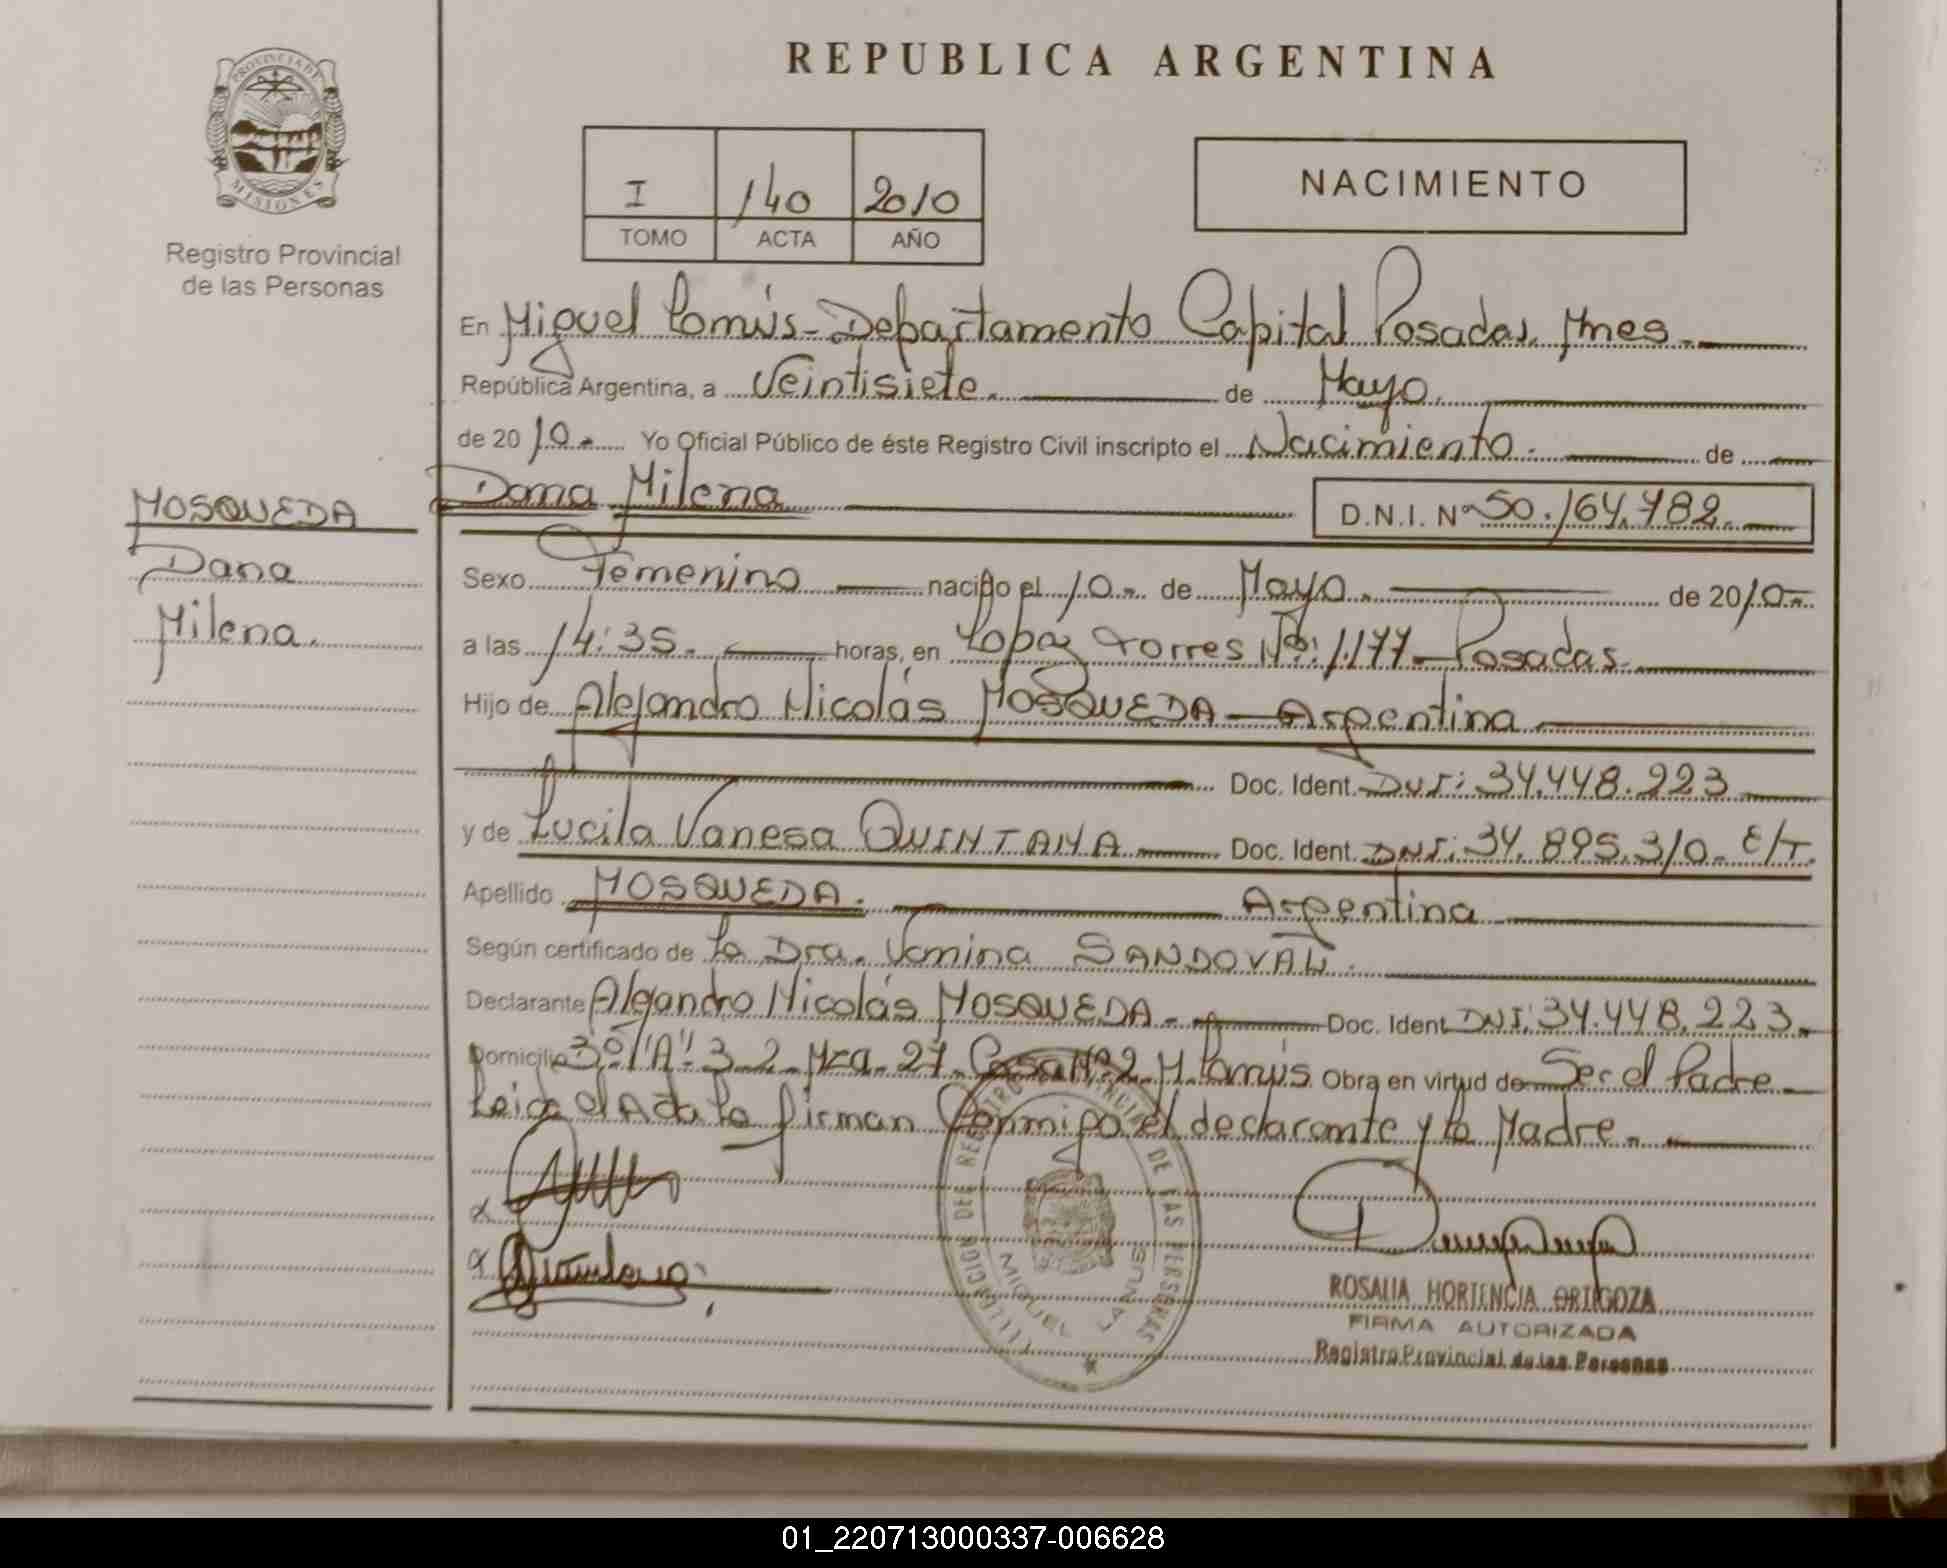 REPUBLICA ARGENTINA
PROVINCIA DE MISIONES
Registro Provincial
de las Personas
I 140 2010
TOMO ACTA AÑO
NACIMIENTO
En Miguel Lanús - Departamento Capital Posadas, Mnes.
República Argentina, a Veintisiete. de Mayo.
de 20 10.- Yo Oficial Público de éste Registro Civil inscripto el Nacimiento. de
MOSQUEDA
Dana
Milena.
Dana Milena D.N.I. Nº 50.164.782.
Sexo Femenino nacido el 10.- de Mayo. de 20 10.-
a las 14:35. horas, en López Torres Nº: 1.177 - Posadas.
Hijo de Alejandro Nicolás MOSQUEDA - Argentina
Doc. Ident. DNI: 34.448.223
y de Lucila Vanesa QUINTANA Doc. Ident. DNI: 34.895.310. E/T.
Apellido MOSQUEDA. Argentina
Según certificado de la Dra. Yanina SANDOVAL.
Declarante Alejandro Nicolás MOSQUEDA. Doc. Ident. DNI: 34.448.223.
Domicilio 3º "A" 32 Mza. 27 Casa Nº 2 M. Lanús Obra en virtud de Ser el Padre
Leida el Acta la firman Conmigo el declarante y la Madre.
DELEGACION DEL REGISTRO PROVINCIAL DE LAS PERSONAS
MIGUEL LANUS
ROSALIA HORTENCIA ORTIGOZA
FIRMA AUTORIZADA
Registro Provincial de las Personas
01_220713000337-006628